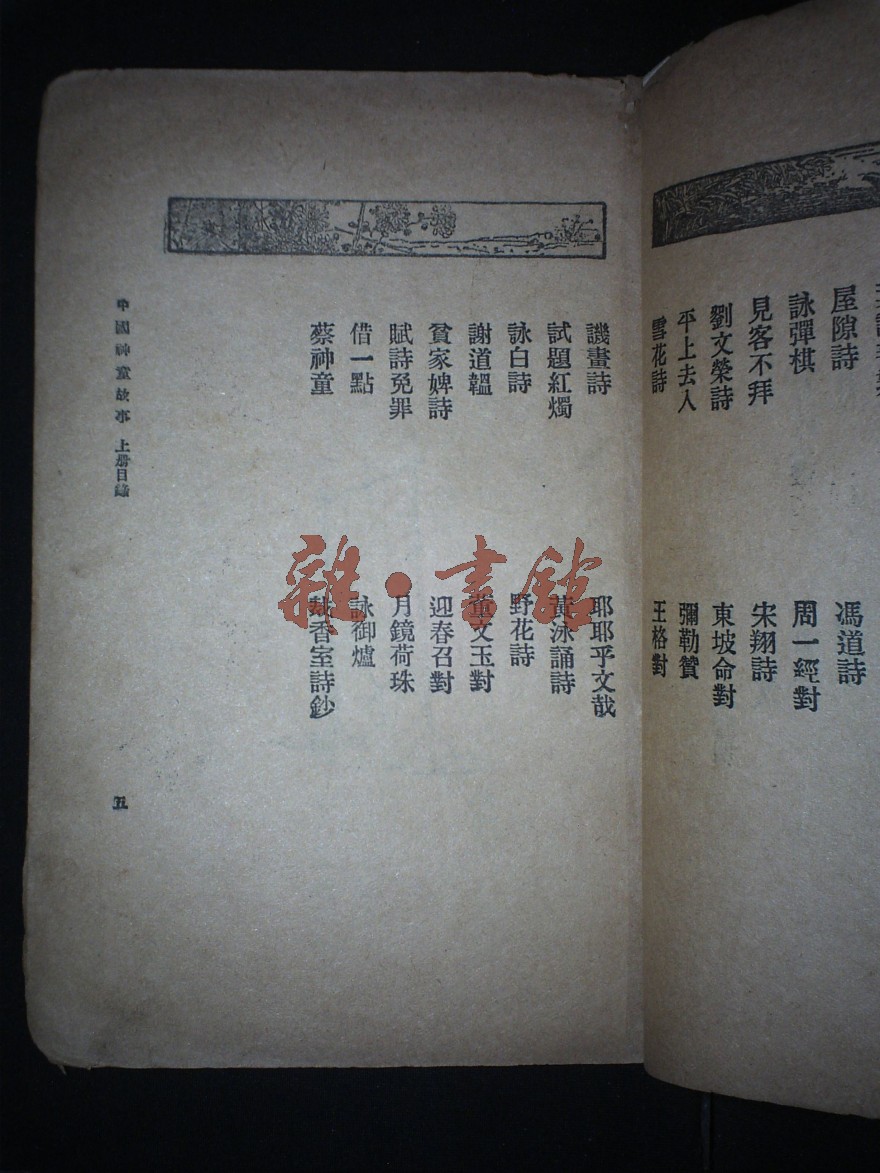 屋隙詩
詠彈棋
見客不拜
劉文榮詩
平上去入
雪花詩
馮道詩
周一經對
宋翔詩
東坡命對
彌勒贊
王格對
譏畫詩
試題紅燭
詠白詩
謝道韞
貧家婢詩
賦詩免罪
借一點
蔡神童
耶耶乎文哉
黃泳誦詩
野花詩
董文玉對
迎春召對
月鏡荷珠
詠御爐
香室詩鈔
中國神童故事 上册目錄
五
雜·書館